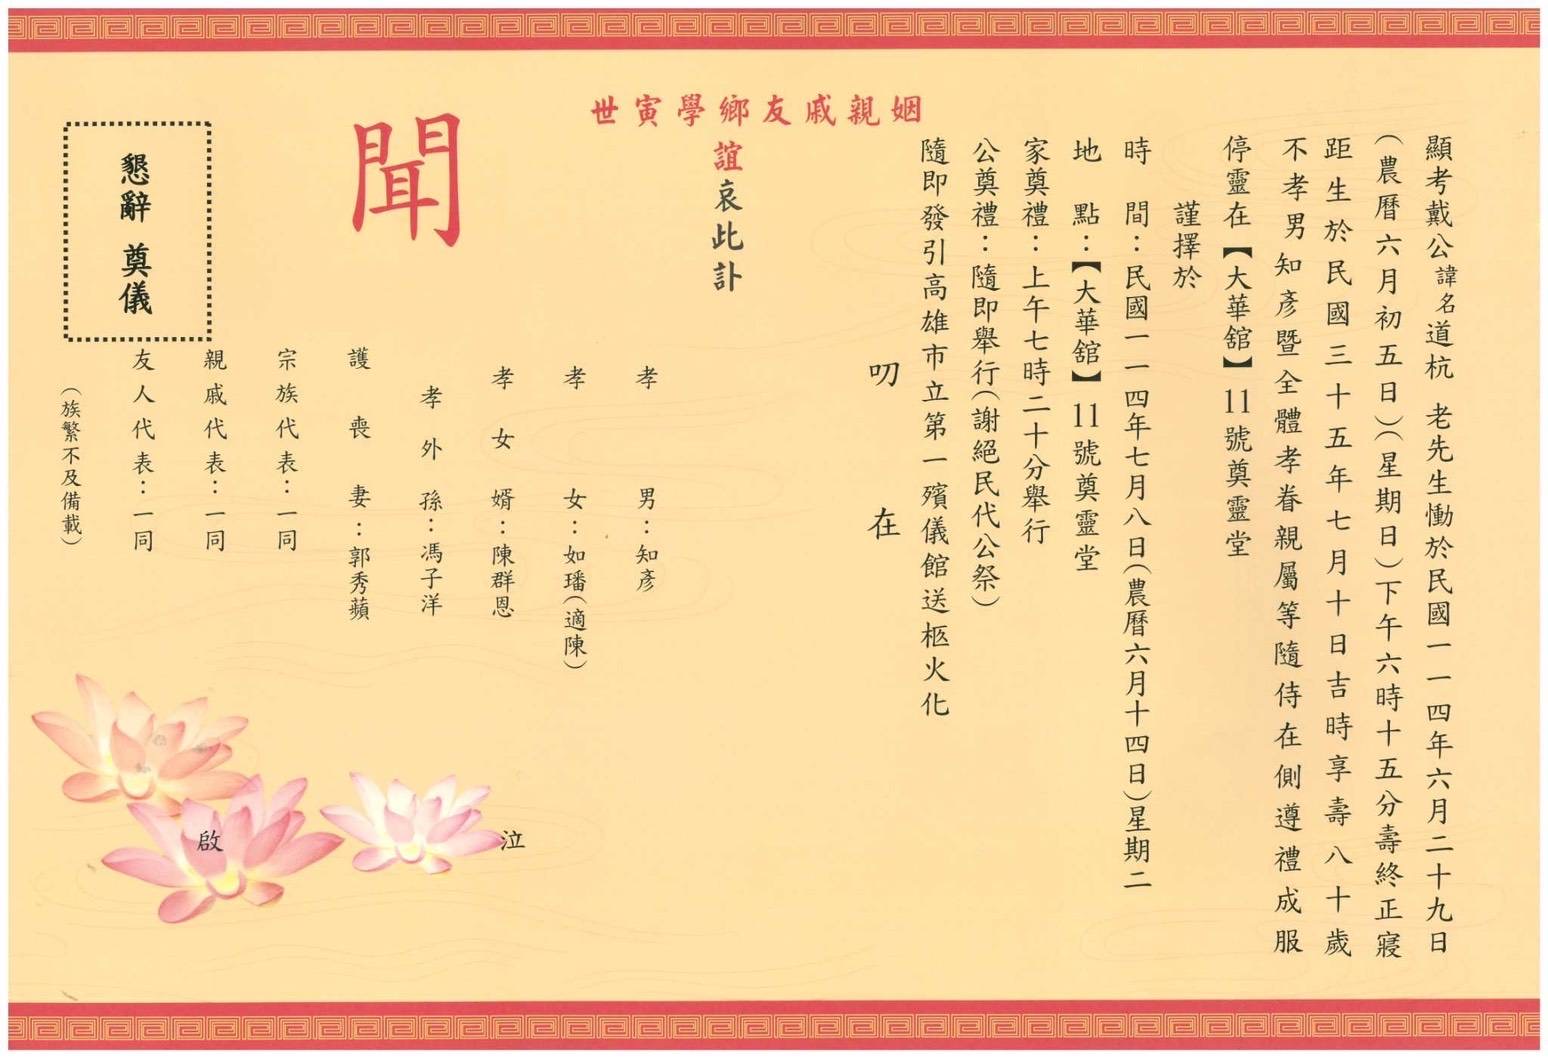 顯考戴公諱名道杭 老先生慟於民國一一四年六月二十九日
(農曆六月初五日)(星期日)下午六時十五分壽終正寢
距生於民國三十五年七月十日吉時享壽八十歲
不孝男知彥暨全體孝眷親屬等隨侍在側遵禮成服
停靈在【大華舘】11號奠靈堂
謹擇於
時 間：民國一一四年七月八日(農曆六月十四日)星期二
地 點：【大華舘】11號奠靈堂
家奠禮：上午七時二十分舉行
公奠禮：隨即舉行(謝絕民代公祭)
隨即發引高雄市立第一殯儀館送柩火化
叨 在
姻親戚友鄉學寅世
誼哀此訃
聞
孝 男：知彥
孝 女：如璠(適陳)
孝女婿：陳群恩
孝外孫：馮子洋
護喪妻：郭秀蘋
宗族代表：一同
親戚代表：一同
友人代表：一同
(族繁不及備載)
泣 啟
懇辭 奠儀